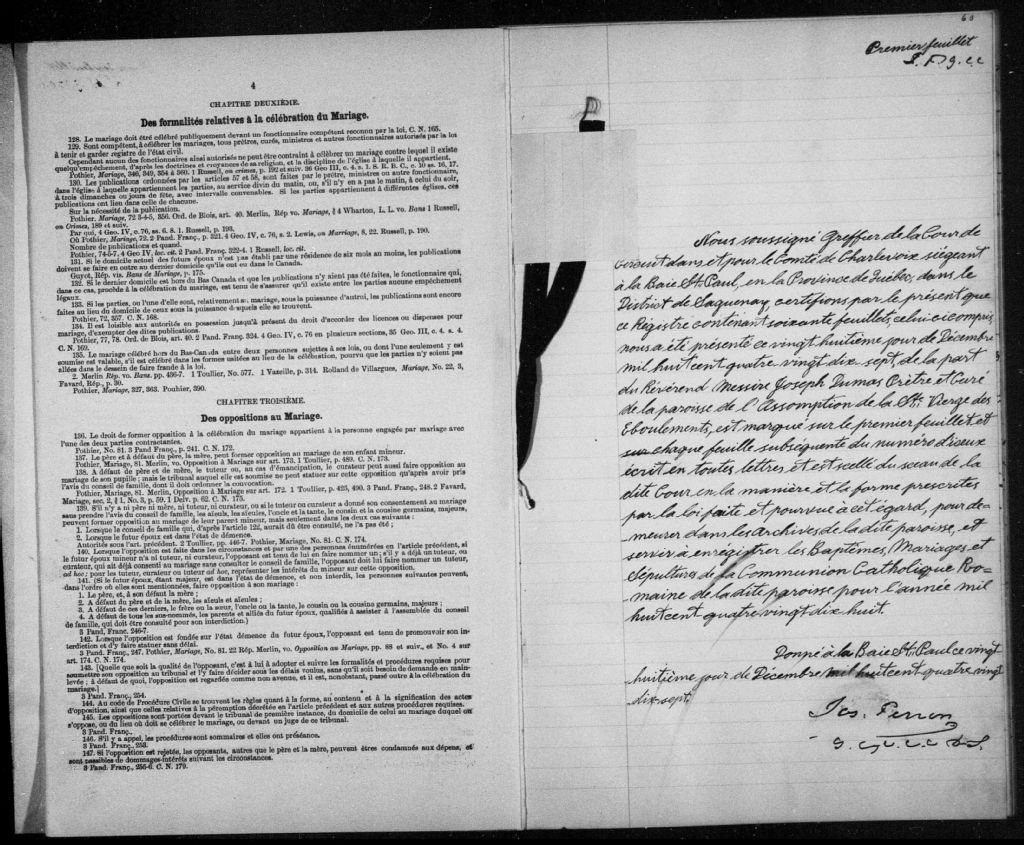 4
CHAPITRE DEUXIÈME.
Des formalités relatives à la célébration du Mariage.
128. Le mariage doit être célébré publiquement devant un fonctionnaire compétent reconnu par la loi. C. N. 165.
129. Sont compétent, à célébrer les mariages, tous prêtres, curés, ministres et autres fonctionnaires autorisés par la loi
à tenir et garder registre de l'état civil.
Cependant aucun des fonctionnaires ainsi autorisés ne peut être contraint à célébrer un mariage contre lequel il existe
quelqu'empêchement, d'après les doctrines et croyances de sa religion, et la discipline de l'église à laquelle il appartient.
Pothier, Mariage, 346, 349, 354 à 360. 1 Russell, on crimes, p. 192 et suiv. 36 Geo III, c. 4, s. 1. S. R. B. C., c. 10 ss. 16, 17.
130. Les publications ordonnées par les articles 57 et 58, sont faites par le prêtre, ministre ou autre fonctionnaire,
dans l'église à laquelle appartiennent les parties, au service divin du matin, ou, s'il n'y en a pas le matin, à celui du soir,
à trois dimanches ou jours de fête, avec intervalle convenables. Si les parties appartiennent à différentes églises, ces
publications ont lieu dans celle de chacune.
Sur la nécessité de la publication.
Pothier, Mariage, 72 3-4-5, 356. Ord. de Blois, art. 40. Merlin, Rép vo. Mariage, § 4 Wharton, L. L. vo. Bans 1 Russell,
on Crimes, 189 et suiv.
Par qui, 4 Geo. IV, c. 76, ss. 6. 8. 1. Russell, p. 193.
Où Pothier, Mariage, 72. 2 Pand. Franç. p. 321. 4 Geo. IV, c. 76, s. 2. Lewis, on Marriage, 8, 22. Russell, p. 190.
Nombre de publications et quand.
Pothier, 74-5-7. 4 Geo IV, loc. cit. 2 Pand. Franç. 322-4. 1 Russell, loc. cit.
131. Si le domicile actuel des futurs époux n'est pas établi par une résidence de six mois au moins, les publications
doivent se faire en outre au dernier domicile qu'ils ont eu dans le Canada.
Guyot, Rép. vis. Bans de Mariage, p. 175.
132. Si le dernier domicile est hors du Bas Canada et que les publications n'y aient pas été faites, le fonctionnaire qui,
dans ce cas, procède à la célébration du mariage, est tenu de s'assurer qu'il existe entre les parties aucune empêchement
légaux.
133. Si les parties, ou l'une d'elle sont, relativement au mariage, sous la puissance d'autrui, les publications sont encore
faites au lieu du domicile de ceux sous la puissance desquels elle se trouvent.
Pothier, 72, 357. C. N. 168.
134. Il est loisible aux autorités en possession jusqu'à présent du droit d'accorder des licences ou dispenses pour
mariage, d'exempter des dites publications.
Pothier, 77, 78. Ord. de Blois, art. 40. 2 Pand Franç. 324. 4 Geo. IV, c. 76 en plusieurs sections, 35 Geo. III, c. 4. s. 4.
C. N. 169.
135. Le mariage célébré hors du Bas-Canada entre deux personnes sujettes à ses lois, ou dont l'une seulement y est
soumise est valable, s'il est célébré dans les formes usitées au lieu de la célébration, pourvu que les parties n'y soient pas
allées dans le dessein de faire fraude à la loi.
2. Merlin Rép. vo. Bans. pp. 436-7. 1 Toullier, No. 577. 1 Vazeille, p. 314. Rolland de Villargues, Mariage, No. 22, 3,
Favard, Rép., p. 30.
Pothier, Mariage, 327, 363. Pouhier, 390.
CHAPITRE TROISIÈME.
Des oppositions au Mariage.
136. Le droit de former opposition à la célébration du mariage appartient à la personne engagée par mariage avec
l'une des deux parties contractantes.
Pothier, No. 81. 3 Pand Franç., p. 241. C. N. 172.
137. Le père et à défaut du père, la mère, peut former opposition au mariage de son enfant mineur.
Pothier, Mariage, 81. Merlin, vo. Opposition à Mariage sur art. 173. 1 Toullier, p. 489. C. N. 173.
138. A défaut de père et de mère, le tuteur ou, au cas d'émancipation, le curateur peut aussi faire opposition au
mariage de son pupille; mais le tribunal auquel elle est soumise ne peut statuer sur cette opposition qu'après avoir pris
l'avis du conseil de famille, dont il doit ordonner la convocation.
Pothier, Mariage, 81. Merlin, Opposition à Mariage sur art. 172. 1 Toullier, p. 425, 490. 3 Pand. Franç., 248. 2 Favard,
Mariage, sec. 2, § I., No. 3, p. 59. 1 Delv. p. 62. C. N. 175.
139. S'il n'y a ni père ni mère, ni tuteur, ni curateur, ou si le tuteur ou curateur a donné son consentement au mariage
sans prendre l'avis du conseil de famille, les aïeuls, les aïeules, l'oncle et la tante, le cousin et la cousine germains, majeurs,
peuvent former opposition au mariage de leur parent mineur, mais seulement dans les deux cas suivants :
1. Lorsque le conseil de famille qui, d'après l'article 122, aurait dû être consulté, ne l'a pas été ;
2. Lorsque le futur époux est dans l'état de démence.
Autorités sous l'art. précédent. 2 Toullier, pp. 446-7. Pothier, Mariage, No. 81. C. N. 174.
140. Lorsque l'opposition est faite dans les circonstances et par une des personnes énumérées en l'article précédent, si
le futur époux mineur n'a ni tuteur, ni curateur, l'opposant est tenu de lui en faire nommer un; s'il y a déjà un tuteur, ou
curateur, qui ait déjà consenti au mariage sans consulter le conseil de famille, l'opposant doit lui faire nommer un tuteur,
ad hoc; pour les tuteur, curateur ou tuteur ad hoc, représenter les intérêts du mineur sur cette opposition.
141. (Si le futur époux, étant majeur, est dans l'état de démence, et non interdit, les personnes suivantes peuvent,
dans l'ordre où elles sont mentionnées, faire opposition à son mariage :
1. Le père, et, à son défaut la mère ;
2. A défaut du père et de la mère, les aïeuls et aïeules ;
3. A défaut de ces derniers, le frère ou la sœur, l'oncle ou la tante, le cousin ou la cousine germains, majeurs ;
4. A défaut de tous les sus-nommés, les parents et alliés du futur époux, qualifiés à assister à l'assemblée du conseil
de famille, qui doit être consulté pour son interdiction.)
3 Pand. Franc. 246-7.
142. Lorsque l'opposition est fondée sur l'état démence du futur époux, l'opposant est tenu de promouvoir son in-
terdiction et d'y faire statuer sans délai.
3 Pand. Franç., 247. Pothier, Mariage, No. 81. 22 Rép. Merlin, vo. Opposition au Mariage, pp. 88 et suiv., et No. 4 sur
art. 174. C. N. 174.
143. [Quelle que soit la qualité de l'opposant, c'est à lui à adopter et suivre les formalités et procédures requises pour
soumettre son opposition au tribunal et l'y faire décider sous les délais voulus, sans qu'il soit besoin de demande en main-
levée ; à défaut de quoi, l'opposition est regardée comme non avenue, et il est, nonobstant, passé outre à la célébration du
mariage.]
3 Pand. Franç., 254.
144. Au code de Procédure Civile se trouvent les règles quant à la forme, au contenu et à la signification des actes
d'opposition, ainsi que celles relatives à la péremption décrétée en l'article précédent et aux autres procédures requises.
145. Les oppositions sont portées devant le tribunal de première instance, du domicile de celui au mariage duquel on
s'oppose, ou du lieu où doit se célébrer le mariage, ou devant un juge de ce tribunal.
3 Pand. Franç.,
146. S'il y a appel, les procédures sont sommaires et elles ont préséance.
3 Pand. Franç., 253.
147. Si l'opposition est rejetée, les opposants, autres que le père et la mère, peuvent être condamnés aux dépens, et
sont passibles de dommages-intérêts suivant les circonstances.
3 Pand. Franç., 255-6. C. N. 179.
60
Premier feuillet
Nous soussigné Greffier de la Cour de
Circuit dans et pour le Comté de Charlevoix siégeant
à la Baie St. Paul, en la Province de Québec, dans le
District de Saguenay, certifions par le présent que
ce Régistre contenant soixante feuillets, celui ci compris,
nous a été présenté ce vingt huitième jour de Décembre
mil huit cent quatre-vingt dix sept, de la part
du Révérend Messire Joseph Dumas Prêtre et Curé
de la paroisse de l'Assomption de la Ste Vierge des
Eboulements, est marqué sur le premier feuillet et
sur chaque feuille subséquente du numéro d'iceux
écrit en toutes lettres, et est scellé du sceau de la
dite Cour, en la manière et la forme prescrites
par la loi faite et pourvue à cet égard, pour de-
meurer dans les archives de la dite paroisse, et
servir à enregistrer les Baptêmes, Mariages et
Sépultures de la Communion Catholique Ro-
maine de la dite paroisse pour l'année mil
huit cent quatre vingt dix huit.
Donné à la Baie St. Paul ce vingt
huitième jour de Décembre mil huit cent quatre vingt
dix-sept.
Jos. Perron